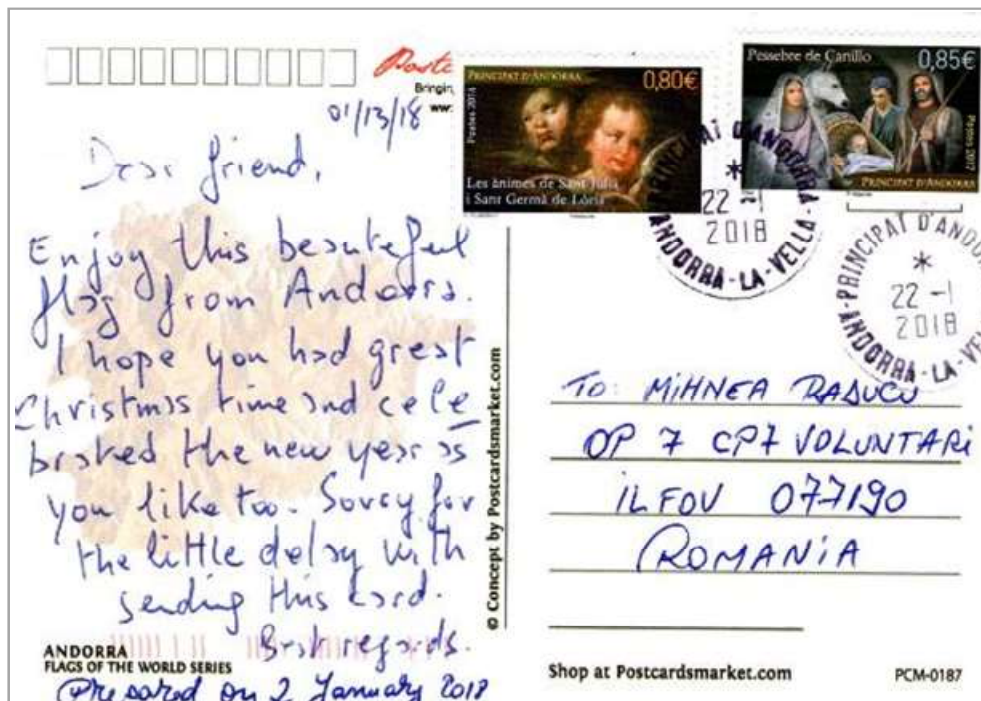 Postc
Bringin
www
01/13/18
Dear friend,
Enjoy this beauteful
flag from Andorra.
I hope you had great
Christmas time and cele
brated the new year as
you like too. Sorry for
the little delay with
sending this card.
Best regards.
ANDORRA
FLAGS OF THE WORLD SERIES
Prepared on 2 January 2018
© Concept by Postcardsmarket.com
PRINCIPAT D'ANDORRA
0,80€
Postes 2014
Les ànimes de Sant Julià
i Sant Germà de Lòria
Pessebre de Canillo
0,85€
Postes 2017
PRINCIPAT D'ANDORRA
PRINCIPAT D'ANDORRA
22 -1
2018
ANDORRA-LA-VELLA
PRINCIPAT D'ANDO
22 -1
2018
ANDORRA-LA-VELL
TO: MIHNEA RADUCU
OP 7 CP7 VOLUNTARI
ILFOV 077190
ROMANIA
Shop at Postcardsmarket.com
PCM-0187